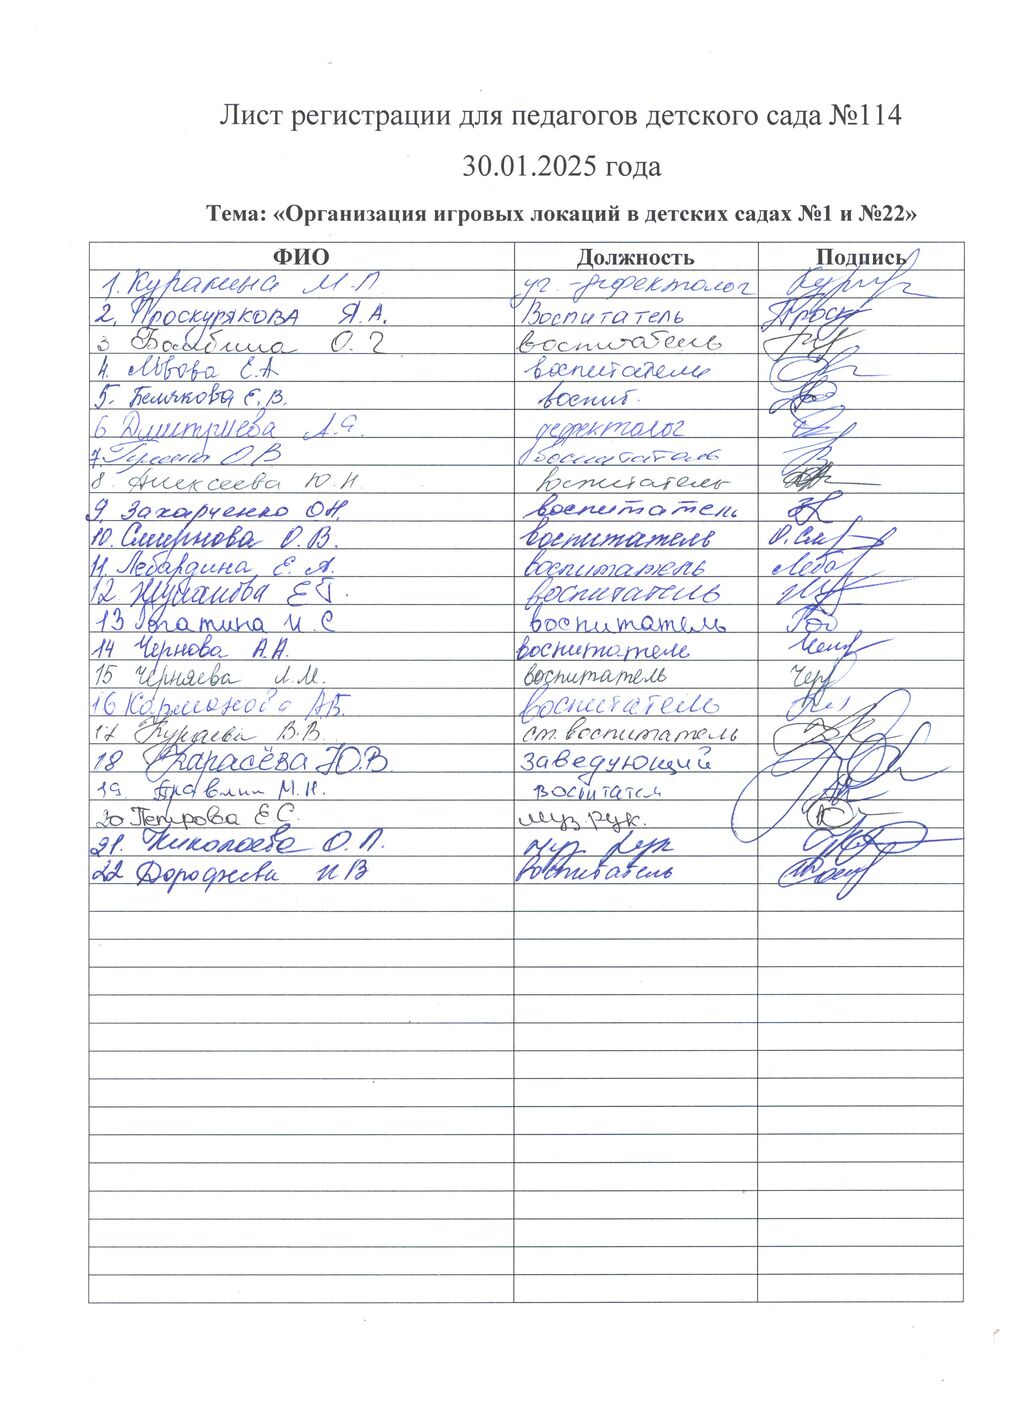 Лист регистрации для педагогов детского сада №114
30.01.2025 года
Тема: «Организация игровых локаций в детских садах №1 и №22»
ФИО Должность Подпись
1. Куракина М. Л. уч. -дефектолог
2. Проскурякова Я.А. Воспитатель
3 О. воспитатель
4. Львова Е.А воспитатель
5. Белякова Е.В. воспит.
6 Дмитриева А.Я. дефектолог
7. О.В воспитатель
8. Алексеева Ю.Н. воспитатель
9. Захарченко О.Н. воспитатель
10. Смирнова О.В. воспитатель О.См
11. Лебардина Е.А. воспитатель Леба
12. Жупанова Е.Г. воспитатель
13 Рогатина И.С воспитатель
14 Чернова А.А. воспитатель
15 Черняева Л.М. воспитатель Чер
16 Карманова А.Б. воспитатель
17 Кунаева В.В. ст. воспитатель
18 Карасёва Ю.В. заведующий
19. М.Н. воспитател
20 Петрова Е С. муз рук.
21. Николаева О.П. муз. рук
22 И В воспитатель